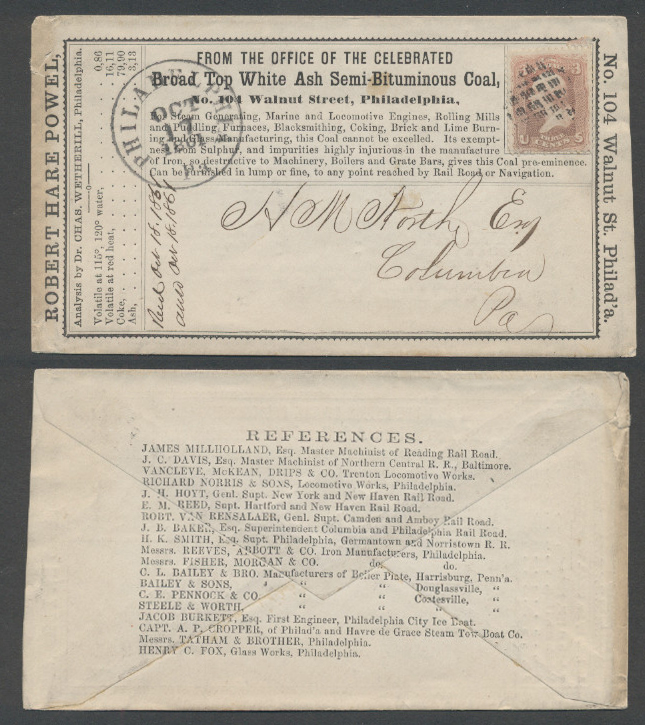 ROBERT HARE POWEL,
Analysis by Dr. CHAS. WETHERILL, Philadelphia.
Volatile at 115°, 120° water, 0,86
Volatile at red heat, 16,11
Coke, 79,90
Ash, 3,13
FROM THE OFFICE OF THE CELEBRATED
Broad Top White Ash Semi-Bituminous Coal,
No. 104 Walnut Street, Philadelphia,
For Steam Generating, Marine and Locomotive Engines, Rolling Mills
and Puddling Furnaces, Blacksmithing, Coking, Brick and Lime Burn-
ing and Glass Manufacturing, this Coal cannot be excelled. Its exempt-
ness from Sulphur, and impurities highly injurious in the manufacture
of Iron, so destructive to Machinery, Boilers and Grate Bars, gives this Coal pre-eminence.
Can be furnished in lump or fine, to any point reached by Rail Road or Navigation.
PHILADELPHIA
OCT
17
1861
Pa.
U THREE S
H M North, Esq
Columbia
Pa
Recd Oct 18. 1861
ansd Oct 18. 1861
No. 104 Walnut St. Philad'a.
REFERENCES.
JAMES MILLHOLLAND, Esq. Master Machinist of Reading Rail Road.
J. C. DAVIS, Esq. Master Machinist of Northern Central R. R., Baltimore.
VANCLEVE, McKEAN, DRIPS & CO. Trenton Locomotive Works.
RICHARD NORRIS & SONS, Locomotive Works, Philadelphia.
J. H. HOYT, Genl. Supt. New York and New Haven Rail Road.
E. M. REED, Supt. Hartford and New Haven Rail Road.
ROBT. VAN RENSALAER, Genl. Supt. Camden and Amboy Rail Road.
J. B. BAKER, Esq. Superintendent Columbia and Philadelphia Rail Road.
H. K. SMITH, Esq. Supt. Philadelphia, Germantown and Norristown R. R.
Messrs. REEVES, ABBOTT & CO. Iron Manufacturers, Philadelphia.
Messrs. FISHER, MORGAN & CO. do. do.
C. L. BAILEY & BRO. Manufacturers of Boiler Plate, Harrisburg, Penn'a.
BAILEY & SONS, " " " Douglassville, "
C. E. PENNOCK & CO. " " " Coatesville, "
STEELE & WORTH, " " " " "
JACOB BURKETT, Esq. First Engineer, Philadelphia City Ice Boat.
CAPT. A. P. CROPPER, of Philad'a and Havre de Grace Steam Tow Boat Co.
Messrs. TATHAM & BROTHER, Philadelphia.
HENRY C. FOX, Glass Works, Philadelphia.